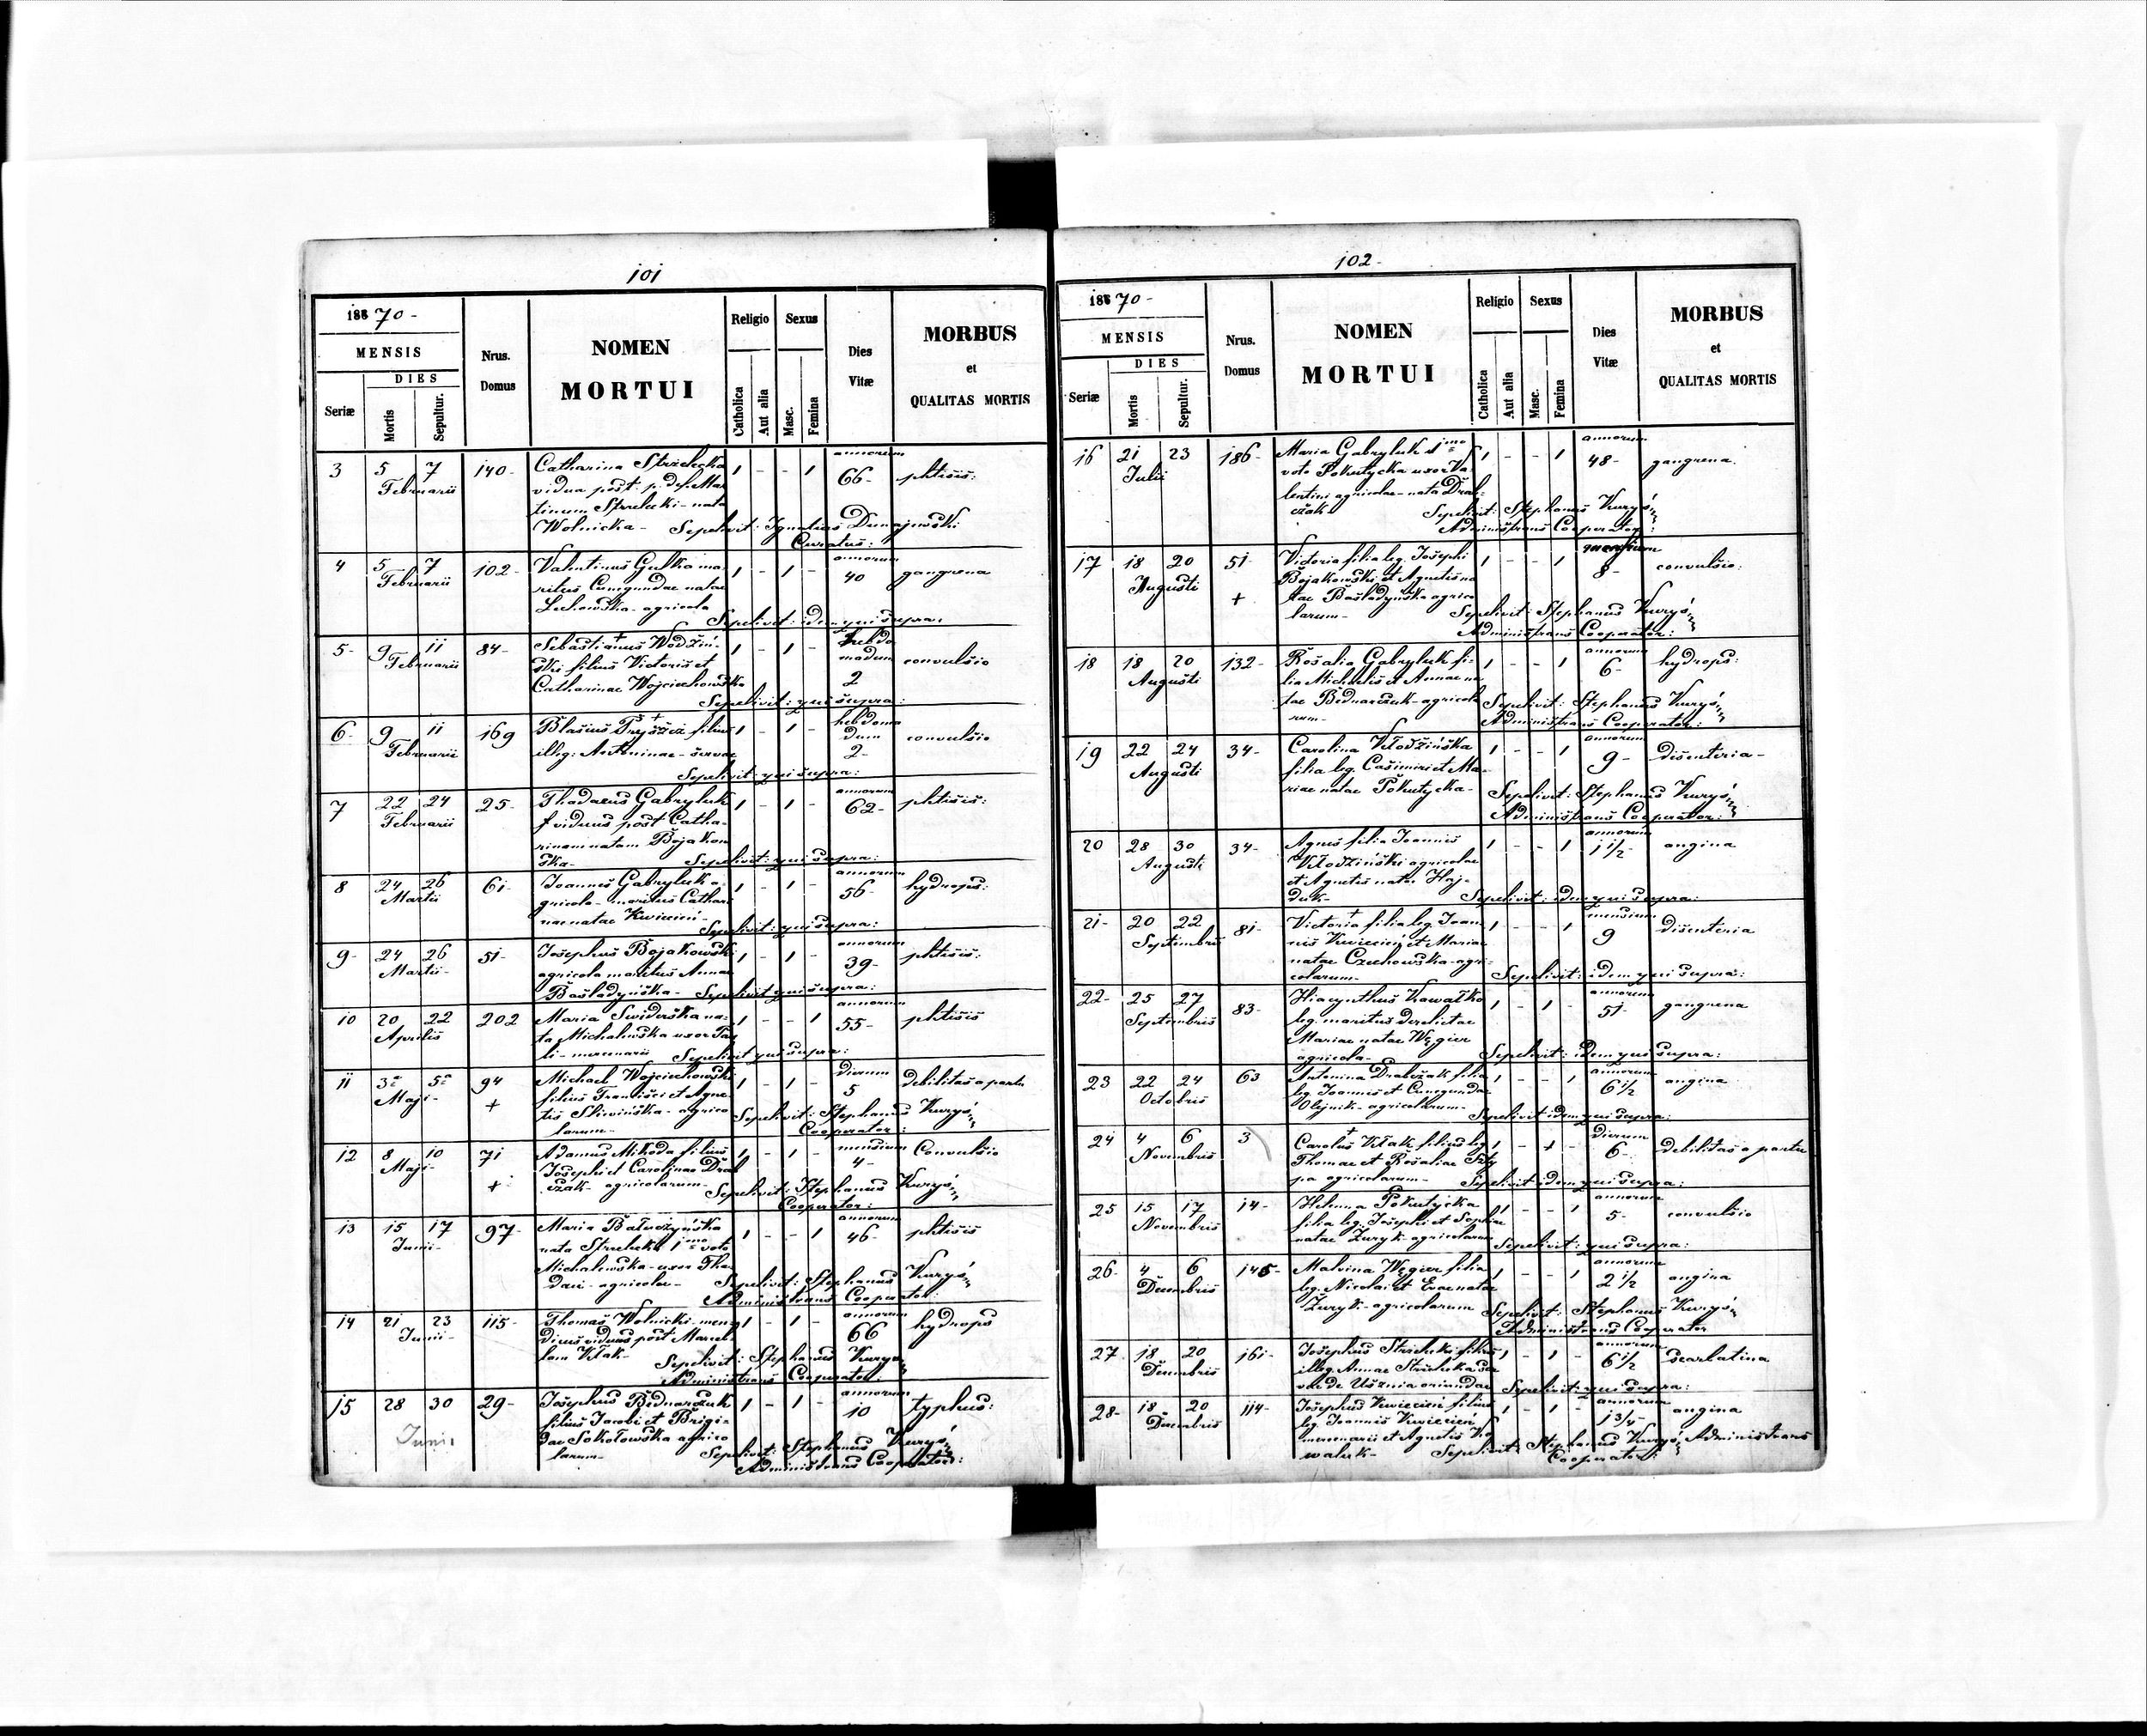 101
1870-
MENSIS
DIES
Seriæ
Mortis
Sepultur.
Nrus. Domus
NOMEN
MORTUI
Religio
Catholica
Aut alia
Sexus
Masc.
Femina
Dies
Vitæ
MORBUS
et
QUALITAS MORTIS
3 5 7 140- Catharina Strzelecka 1 - - 1 annorum
Februarii vidua post p. def. Mar 66- phtisis:
tinum Strzelecki - nata
Wolnicka - Sepelivit: Ignatius Dunajewski
Curatus:
4 5 7 102- Valentinus Gulka ma- 1 - 1 - annorum
Februarii ritus Cunegundae natae 40 gangrena
Lechowska - agricola
Sepelivit: idem qui supra.
5- 9 11 84- Sebastianus Wodziń- 1 - 1 - hebdo
Februarii ski filius Victoris et madum convulsio
Catharinae Wojciechowska 2
Sepelivit: qui supra:
6- 9 11 169 Blasius filius 1 - 1 - hebdoma
Februarii illeg: Antoninae - servae dum convulsio
2-
Sepelivit qui supra:
7 22 24 25- Thadaeus Gabryluk 1 - 1 - annorum
Februarii viduus post Catha- 62- phtisis:
rinam natam Bojakow
ska- Sepelivit: qui supra:
8 24 26 61- Joannes Gabryluk a- 1 - 1 - annorum
Martii gricola - maritus Cathari 56- hydrops:
nae natae Kwiecień-
Sepelivit: qui supra:
9- 24 26 51- Josephus Bojakowski 1 - 1 - annorum
Martii- agricola maritus Annae 39- phtisis:
Basladyńska- Sepelivit qui supra:
10 20 22 202 Maria Swiderska na- 1 - - 1 annorum
Aprilis ta Michalewska uxor Pau 55- phtisis
li - mercenarii Sepelivit qui supra:
11 3a 5a 94 Michael Wojciechowski 1 - 1 - dierum
Maji- + filius Francisci et Agne- 5 debilitas a partu
tis Sliwińska - agrico Sepelivit: Stephanus Kuryś
larum- Cooperator:
12 8 10 71 Adamus Mikoda filius 1 - 1 - mensium Convulsio
Maji- Josephi et Carolinae Drab 4-
+ czak - agricolarum- Sepelivit: Stephanus Kuryś
Cooperator:
13 15 17 97- Maria Bałudzyńska 1 - - 1 annorum
Junii- nata Strzelecki 1mo voto 46- phtisis
Michalewska - uxor Tha-
daei - agricolae- Sepelivit: Stephanus Kuryś
Administrans Cooperator:
14 21 23 115- Thomas Wolnicki men- 1 - 1 - annorum
Junii- dicus viduus post Marcel- 66 hydrops
lam Kłak- Sepelivit: Stephanus Kuryś
Administrans Cooperator:
15 28 30 29- Josephus Bednarczuk 1 - 1 - annorum
Junii filius Jacobi et Brigi- 10 typhus:
dae Sokołowska agrico
larum- Sepelivit: Stephanus Kuryś
Administrans Cooperator:
102-
1870-
MENSIS
DIES
Seriæ
Mortis
Sepultur.
Nrus.
Domus
NOMEN
MORTUI
Religio
Catholica
Aut alia
Sexus
Masc.
Femina
Dies
Vitæ
MORBUS
et
QUALITAS MORTIS
16 21 23 186- Maria Gabryluk 1mo 1 - - 1 annorum
Julii voto Pokutycka uxor Va 48- gangrena
lentini agricolae - nata Drab-
czak Sepelivit: Stephanus Kuryś
Administrans Cooperator:
17 18 20 51- Victoria filia leg. Josephi 1 - - 1 mensium
Augusti + Bojakowski et Agnetis na 8- convulsio:
tae Basladyńska agrico
larum- Sepelivit: Stephanus Kuryś
Administrans Cooperator:
18 18 20 132- Rosalia Gabryluk fi- 1 - - 1 annorum
Augusti lia Michaelis et Annae na 6- hydrops:
tae Bednarczuk - agricola Sepelivit: Stephanus Kuryś
rum- Administrans Cooperator:
19 22 24 34- Carolina Włodzińska 1 - - 1 annorum
Augusti filia leg. Casimiri et Ma- 9- disenteria-
riae natae Pokutycka- Sepelivit: Stephanus Kuryś
Administrans Cooperator:
20 28 30 34- Agnes filia Joannis 1 - - 1 annorum
Augusti Włodziński agricolae 1 1/2- angina
et Agnetis natae Haj-
duk- Sepelivit: idem qui supra:
21- 20 22 81- Victoria filia leg. Joan 1 - - 1 mensium
Septembris nis Kwiecień et Mariae 9 disenteria
natae Czechowska - agri-
colarum- Sepelivit: idem qui supra:
22- 25 27 83- Hiacynthus Kawałko 1 - 1 - annorum
Septembris leg. maritus derelictae 51- gangrena
Mariae natae Węgier
agricola- Sepelivit: idem qui supra:
23 22 24 63 Antonina Drabczak filia 1 - - 1 annorum
Octobris leg. Joannis et Cunegundae 6 1/2 angina
Olejnik - agricolarum- Sepelivit idem qui supra:
24 4 6 3 Carolus Kłak filius leg 1 - 1 - dierum
Novembris Thomae et Rosaliae Szty 6- debilitas a partu
pa agricolarum- Sepelivit idem qui supra:
25 15 17 14- Helena Pokutycka 1 - - 1 annorum
Novembris filia leg. Josephi et Sophiae 5- convulsio
natae Zuryk - agricolarum Sepelivit: qui supra:
26- 4 6 145- Malvina Węgier filia 1 - - 1 annorum
Decembris leg. Nicolai et Evae natae 2 1/2 angina
Zuryk - agricolarum Sepelivit: Stephanus Kuryś
Administrans Cooperator
27- 18 20 161- Josephus Strzelecki filius 1 - 1 - annorum
Decembris illeg. Annae Strzelecka ser 6 1/2 scarlatina
vae de Usznia oriundae Sepelivit: qui supra:
28- 18 20 114- Josephus Kwiecień filius 1 - 1 - annorum
Decembris leg. Joannis Kwiecień 1 3/4- angina
mercenarii et Agnetis Ko
waluk- Sepelivit: Stephanus Kuryś Administrans
Cooperator: